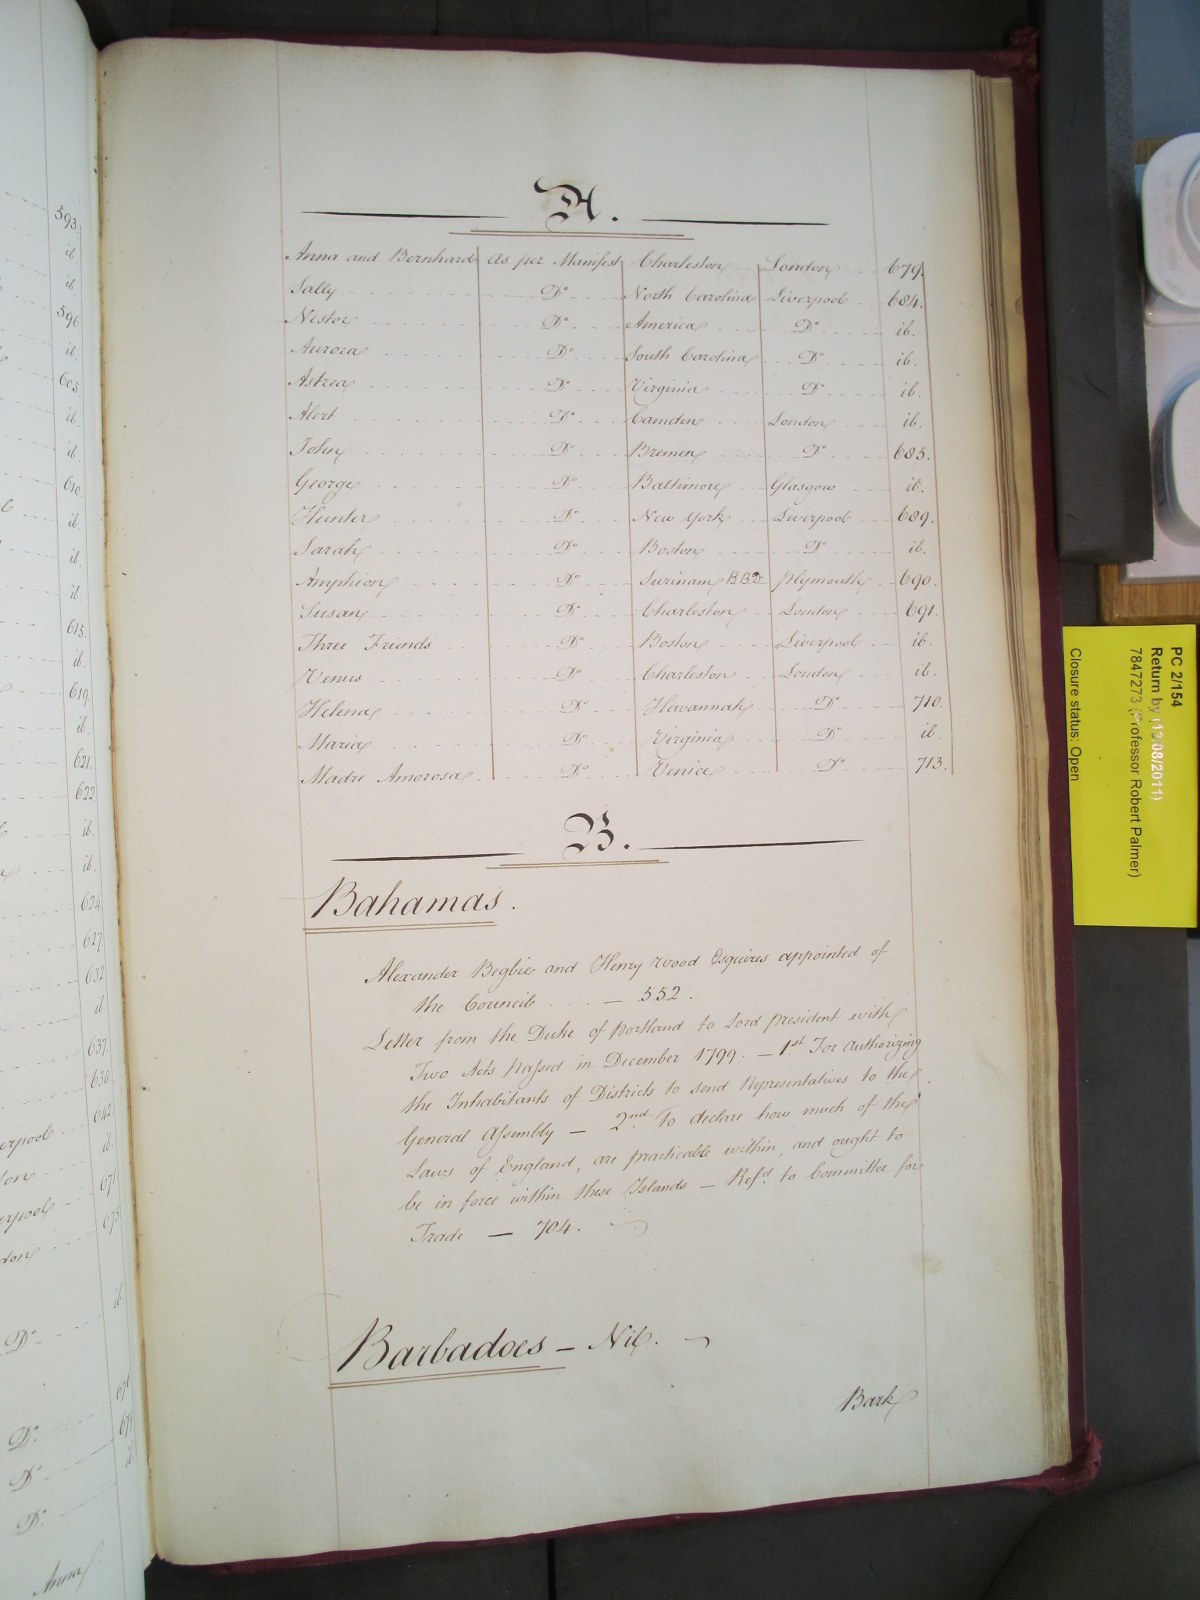 A.
Anna and Bernhard As per Manifest Charleston London 679.
Sally Do North Carolina Liverpool 684.
Nestor Do America Do ib.
Aurora Do South Carolina Do ib.
Astrea Do Virginia Do ib.
Alert Do Camden London ib.
John Do Bremen Do 685.
George Do Baltimore Glasgow ib.
Hunter Do New York Liverpool 689.
Sarah Do Boston Do ib.
Amphion Do Surinam Plymouth 690.
Susan Do Charleston London 691.
Three Friends Do Boston Liverpool ib.
Venus Do Charleston London ib.
Helena Do Havannah Do 710.
Maria Do Virginia Do ib.
Madre Amorosa Do Venice Do 713.
B.
Bahamas.
Alexander Begbie and Henry Wood Esquires appointed of
the Council — 552.
Letter from the Duke of Portland to Lord President with
Two Acts Passed in December 1799. — 1st For Authorizing
the Inhabitants of Districts to send Representatives to the
General Assembly — 2nd To declare how much of the
Laws of England, are practicable within, and ought to
be in force within these Islands — Refd to Committee for
Trade — 704.
Barbadoes — Nil.
Bark
593.
ib
ib
596
ib.
605.
ib.
ib.
610.
ib.
ib.
ib.
615.
ib.
619.
ib.
621.
622
ib.
ib.
624
627
632
ib.
637.
638.
642.
ib.
671
675
ib
Do
Do
Do
Do
Anna
PC 2/154
Return by (12/08/2011)
7847273 (Professor Robert Palmer)
Closure status: Open